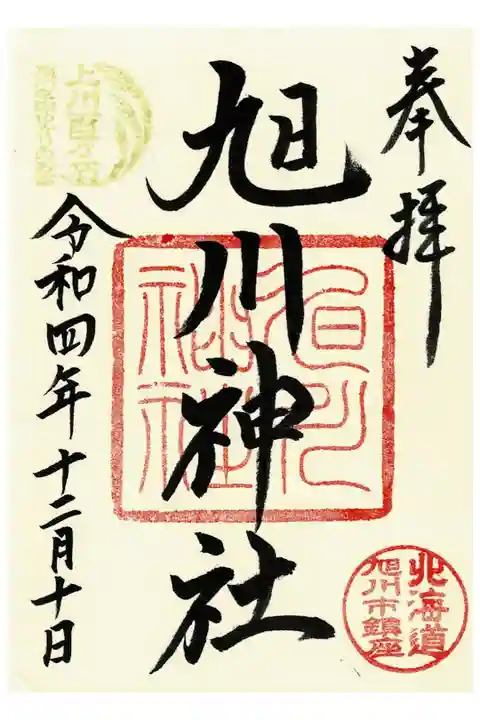 奉拝
旭川神社
旭川
神社
北海道
旭川市鎮座
上川百万石
令和四年十二月十日